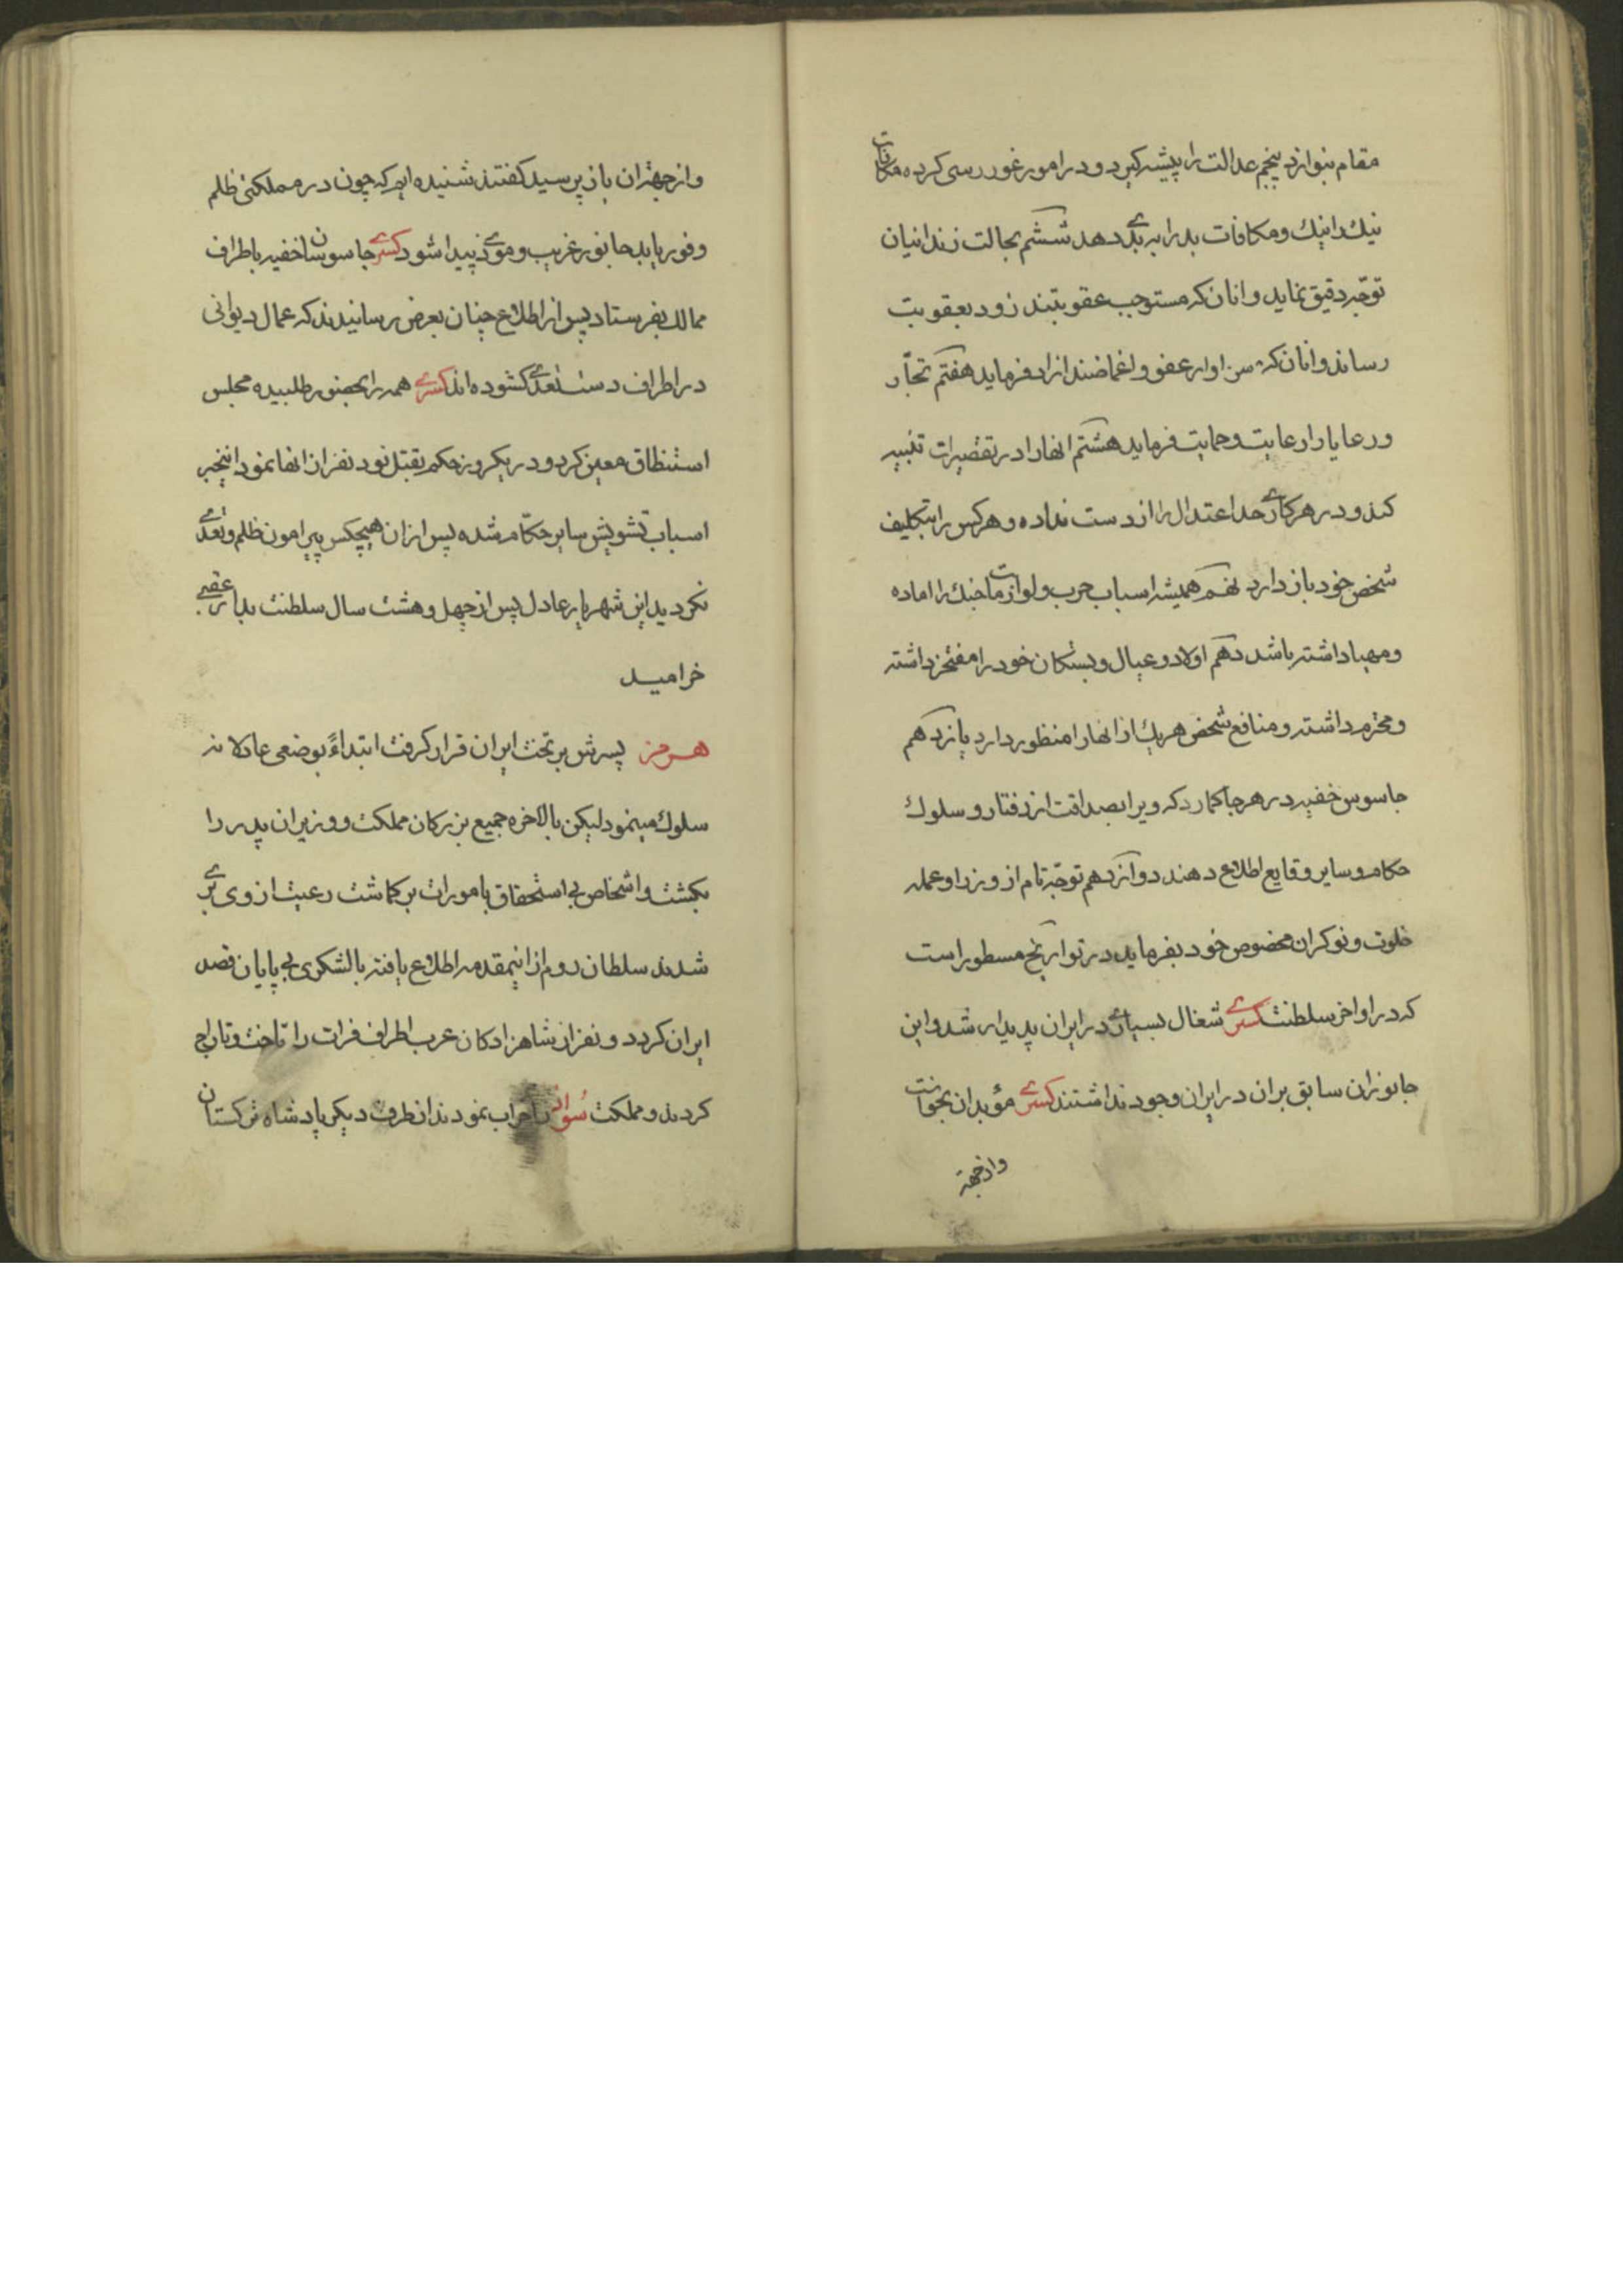 مقام بنوازد پنجم عدالت را پیشه گیرد و در امور غور رسی کرده مکافات
نیك را نیك و مکافات بد را به بدی دهد ششم بحالت زندانیان
توجّه دقیق نماید و انان که مستوجب عقوبتند زود بعقوبت
رساند و انان که سزاوار عفو و اغماضند ازاد فرماید هفتم تجّار
و رعایا را رعایت و حمایت فرماید هشتم انها را در تقصیرات تنبیه
کند و در هر کاری حد اعتدال را از دست نداده و هر کس را بتکلیف
شخص خود باز دارد نهم همیشه اسباب حرب و لوازمات جنك را اماده
و مهیا داشته باشد دهم اولاد و عیال و بستکان خود را مفتخر داشته
و محترم داشته و منافع شخص هر یك از انها را منظور دارد یازدهم
جاسوس خفیه در هر جا کمارد که ویرا بصداقت از رفتار و سلوك
حکام و سایر وقایع اطلاع دهند دوازدهم توجّه تام از وزرا و عمله
خلوت و نوکران مخصوص خود بفرماید در تواریخ مسطور است
که در اواخر سلطنت کسری شغال بسیاری در ایران پدیدار شد و این
جانوران سابق بران در ایران وجود نداشتند کسری مؤبدان بخواست
وازجهة
و از جهة ان باز پرسید کفتند شنیده ایم که چون در مملکتی ظلم
وفور یابد جانور غریب و موذی پیدا شود کسری جاسوسان خفیه باطراف
ممالك بفرستاد پس از اطلاع چنان بعرض رسانیدند که عمال دیوانی
در اطراف دست تعدی کشوده اند کسری همه را بحضور طلبیده مجلس
استنطاق معین کرد و در یکروز حکم بقتل نود نفر از انها نمود اینخبر
اسباب تشویش سایر حکّام شده پس از ان هیچکس پیرامون ظلم و تعدی
نکردید این شهریار عادل پس از چهل و هشت سال سلطنت بدار عقبی
خرامید
هرمز پسرش بر تخت ایران قرار کرفت ابتداءً بوضعی عادلانه
سلوك مینمود لیکن بالاخره جمیع بزرکان مملکت و وزیران پدر را
بکشت و اشخاص بی استحقاق بامورات بر کماشت رعیت از وی بری
شدند سلطان روم از اینمقدمه اطلاع یافته با لشکری بی پایان قصد
ایران کرد دو نفر از شاهزادکان عرب اطراف فرات را تاخت و تاراج
کردند و مملکت سواد را خراب نمودند از طرف دیکر پادشاه ترکستان